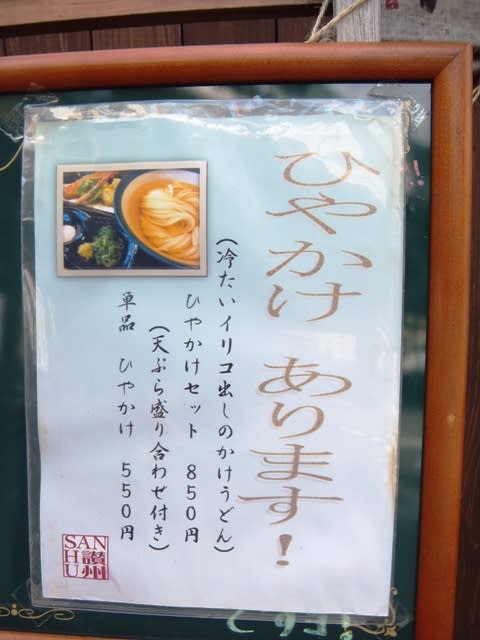 ひやかけ あります!
(冷たいイリコ出しのかけうどん)
ひやかけセット 850円
(天ぷら盛り合わせ付き)
単品 ひやかけ 550円
SAN
HU
讃州